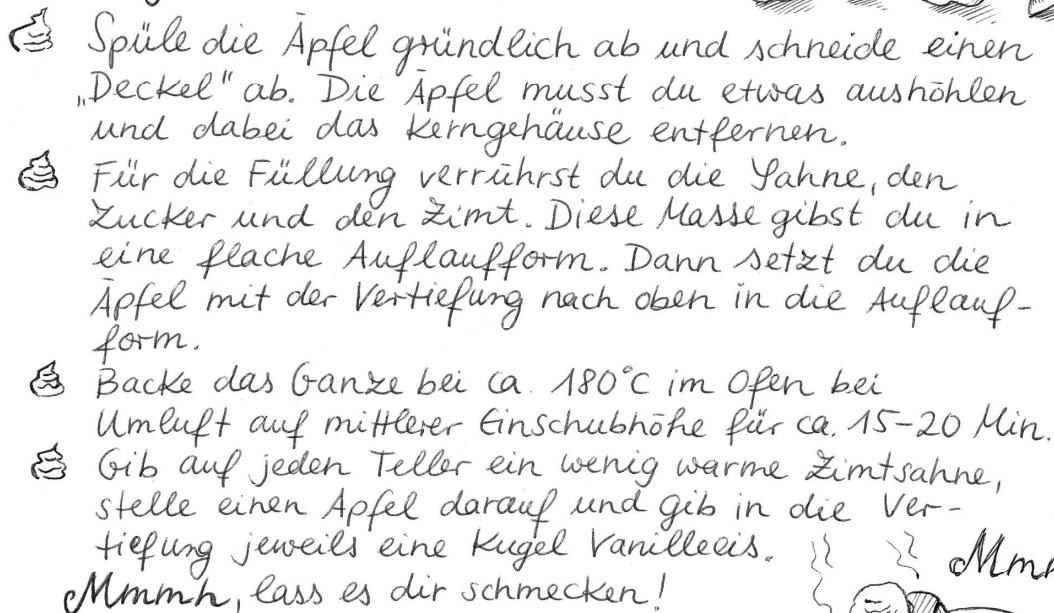 Spüle die Äpfel gründlich ab und schneide einen
„Deckel" ab. Die Äpfel musst du etwas aushöhlen
und dabei das Kerngehäuse entfernen.
Für die Füllung verrührst du die Sahne, den
Zucker und den Zimt. Diese Masse gibst du in
eine flache Auflaufform. Dann setzt du die
Äpfel mit der Vertiefung nach oben in die Auflauf-
form.
Backe das Ganze bei ca. 180°C im Ofen bei
Umluft auf mittlerer Einschubhöhe für ca. 15-20 Min.
Gib auf jeden Teller ein wenig warme Zimtsahne,
stelle einen Apfel darauf und gib in die Ver-
tiefung jeweils eine Kugel Vanilleeis.
Mmmh, lass es dir schmecken!